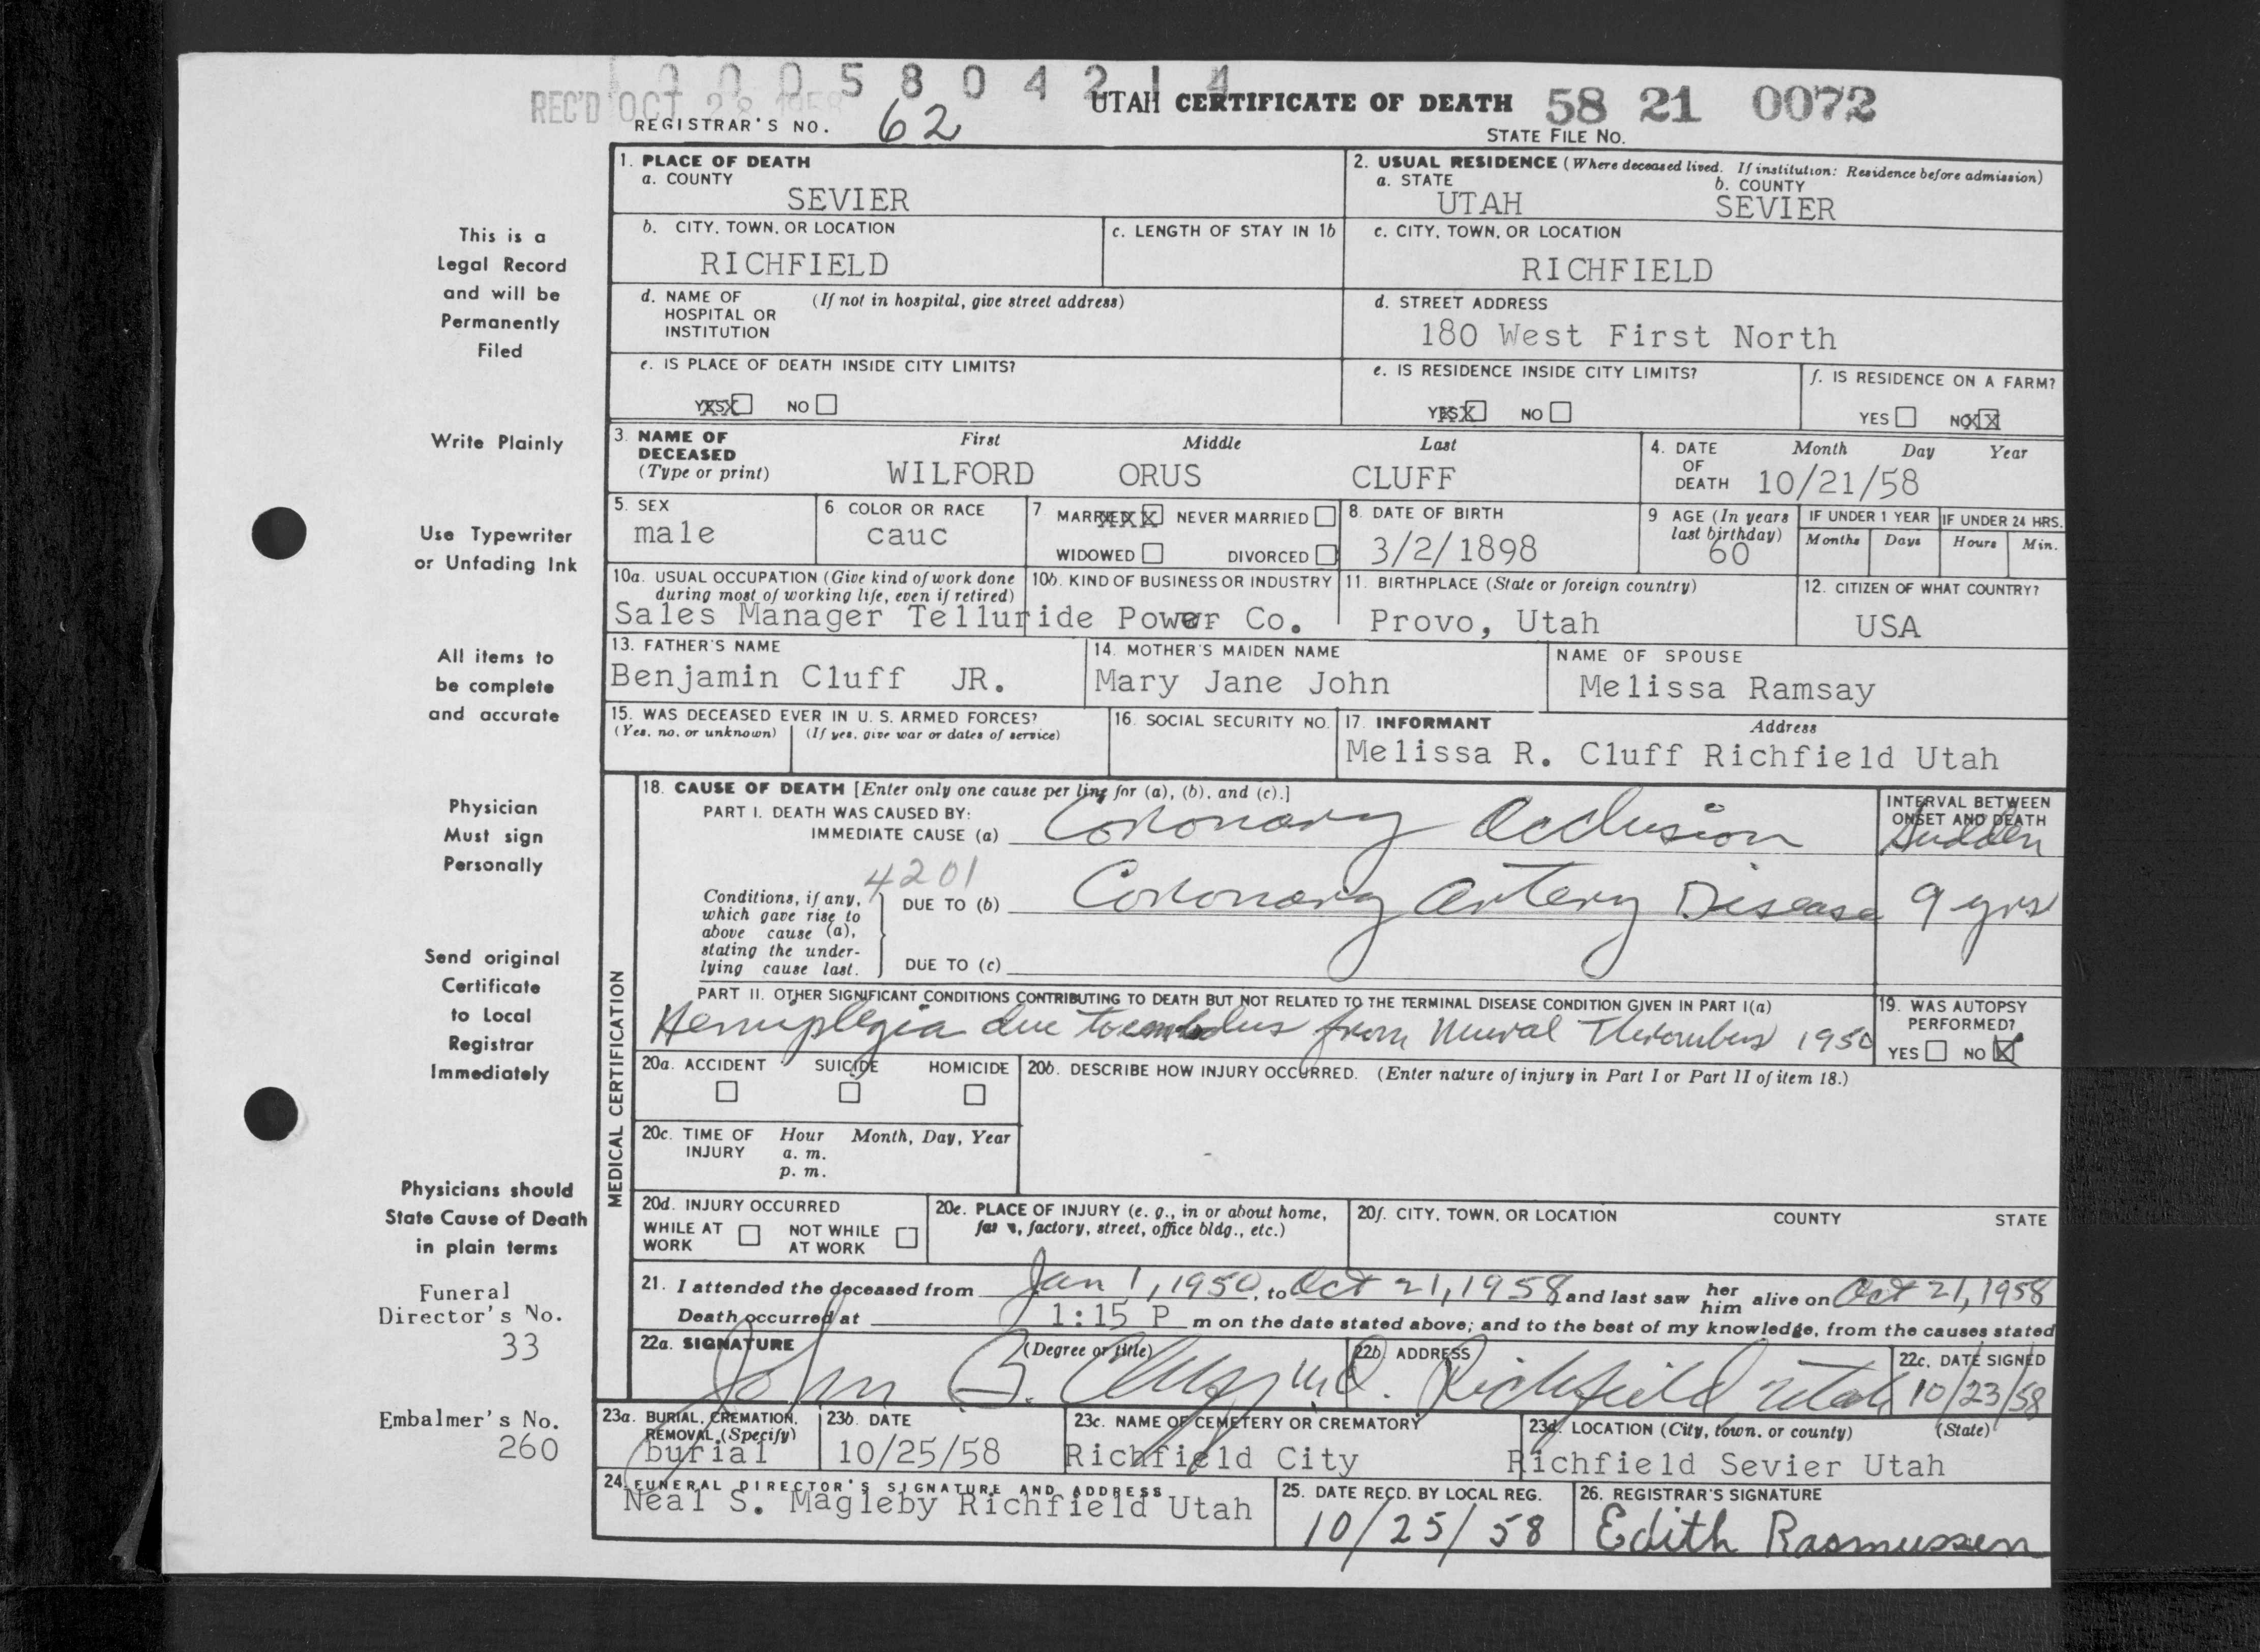 1 0 0 5 8 0 4 2 1 4
REC'D OCT 28 1958
UTAH CERTIFICATE OF DEATH 58 21 0072
REGISTRAR'S NO. 62
STATE FILE NO.
This is a
Legal Record
and will be
Permanently
Filed
Write Plainly
Use Typewriter
or Unfading Ink
All items to
be complete
and accurate
Physician
Must sign
Personally
Send original
Certificate
to Local
Registrar
Immediately
Physicians should
State Cause of Death
in plain terms
Funeral
Director's No.
33
Embalmer's No.
260
1. PLACE OF DEATH
a. COUNTY
SEVIER
2. USUAL RESIDENCE (Where deceased lived. If institution: Residence before admission)
a. STATE b. COUNTY
UTAH SEVIER
b. CITY, TOWN, OR LOCATION
RICHFIELD
c. LENGTH OF STAY IN 1b
c. CITY, TOWN, OR LOCATION
RICHFIELD
d. NAME OF (If not in hospital, give street address)
HOSPITAL OR
INSTITUTION
d. STREET ADDRESS
180 West First North
e. IS PLACE OF DEATH INSIDE CITY LIMITS?
YES NO
e. IS RESIDENCE INSIDE CITY LIMITS?
YES NO
f. IS RESIDENCE ON A FARM?
YES NO
3. NAME OF First Middle Last
DECEASED
(Type or print) WILFORD ORUS CLUFF
4. DATE Month Day Year
OF
DEATH 10/21/58
5. SEX
male
6 COLOR OR RACE
cauc
7 MARRIED NEVER MARRIED
WIDOWED DIVORCED
8. DATE OF BIRTH
3/2/1898
9 AGE (In years
last birthday)
60
IF UNDER 1 YEAR IF UNDER 24 HRS.
Months Days Hours Min.
10a. USUAL OCCUPATION (Give kind of work done
during most of working life, even if retired)
10b. KIND OF BUSINESS OR INDUSTRY
Sales Manager Telluride Power Co.
11. BIRTHPLACE (State or foreign country)
Provo, Utah
12. CITIZEN OF WHAT COUNTRY?
USA
13. FATHER'S NAME
Benjamin Cluff JR.
14. MOTHER'S MAIDEN NAME
Mary Jane John
NAME OF SPOUSE
Melissa Ramsay
15. WAS DECEASED EVER IN U. S. ARMED FORCES?
(Yes, no, or unknown) (If yes, give war or dates of service)
16. SOCIAL SECURITY NO.
17. INFORMANT Address
Melissa R. Cluff Richfield Utah
MEDICAL CERTIFICATION
18. CAUSE OF DEATH [Enter only one cause per line for (a), (b), and (c).]
PART I. DEATH WAS CAUSED BY:
IMMEDIATE CAUSE (a) Coronary Occlusion
INTERVAL BETWEEN
ONSET AND DEATH
Sudden
4201
Conditions, if any,
which gave rise to
above cause (a),
stating the under-
lying cause last.
DUE TO (b) Coronary Artery Disease 9 yrs
DUE TO (c)
PART II. OTHER SIGNIFICANT CONDITIONS CONTRIBUTING TO DEATH BUT NOT RELATED TO THE TERMINAL DISEASE CONDITION GIVEN IN PART I(a)
Hemiplegia due to embolus from Mural Thrombus 1950
19. WAS AUTOPSY
PERFORMED?
YES NO
20a. ACCIDENT SUICIDE HOMICIDE
20b. DESCRIBE HOW INJURY OCCURRED. (Enter nature of injury in Part I or Part II of item 18.)
20c. TIME OF Hour Month, Day, Year
INJURY a. m.
p. m.
20d. INJURY OCCURRED
WHILE AT NOT WHILE
WORK AT WORK
20e. PLACE OF INJURY (e. g., in or about home,
farm, factory, street, office bldg., etc.)
20f. CITY, TOWN, OR LOCATION COUNTY STATE
21. I attended the deceased from Jan 1, 1950, to Oct 21, 1958 and last saw her him alive on Oct 21, 1958
Death occurred at 1:15 P m on the date stated above; and to the best of my knowledge, from the causes stated
22a. SIGNATURE (Degree or title)
John G. M.D.
22b. ADDRESS
Richfield Utah
22c. DATE SIGNED
10/23/58
23a. BURIAL, CREMATION,
REMOVAL (Specify)
burial
23b. DATE
10/25/58
23c. NAME OF CEMETERY OR CREMATORY
Richfield City
23d. LOCATION (City, town, or county) (State)
Richfield Sevier Utah
24. FUNERAL DIRECTOR'S SIGNATURE AND ADDRESS
Neal S. Magleby Richfield Utah
25. DATE RECD. BY LOCAL REG.
10/25/58
26. REGISTRAR'S SIGNATURE
Edith Rasmussen